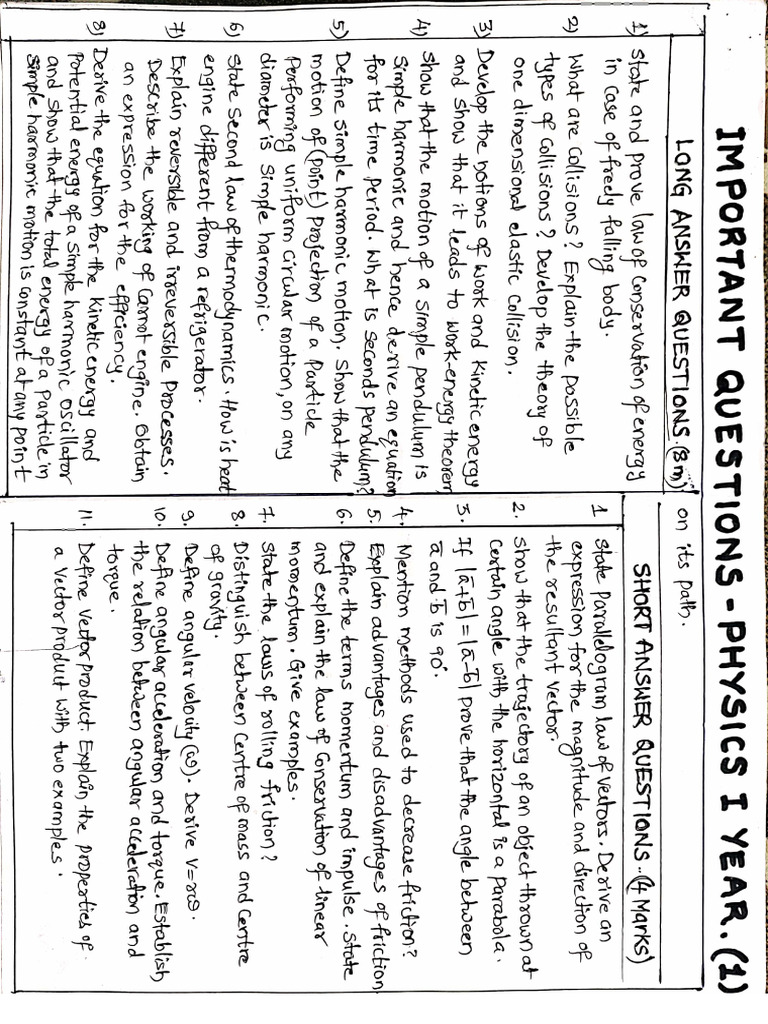 IMPORTANT QUESTIONS - PHYSICS I YEAR. (1)
LONG ANSWER QUESTIONS. (8m)
1) State and prove law of conservation of energy
in case of freely falling body.
2) What are collisions? Explain the possible
types of collisions? Develop the theory of
one dimensional elastic collision.
3) Develop the notions of work and kinetic energy
and show that it leads to work-energy theorem
4) Show that the motion of a simple pendulum is
simple harmonic and hence derive an equation
for its time period. What is seconds pendulum?
5) Define simple harmonic motion. Show that the
motion of (point) projection of a particle
performing uniform circular motion, on any
diameter is simple harmonic.
6) State second law of thermodynamics. How is heat
engine different from a refrigerator.
7) Explain reversible and irreversible processes.
Describe the working of Carnot engine. Obtain
an expression for the efficiency.
8) Derive the equation for the kinetic energy and
potential energy of a simple harmonic oscillator
and show that the total energy of a particle in
simple harmonic motion is constant at any point
on its path.
SHORT ANSWER QUESTIONS..(4 Marks)
1 State parallelogram law of vectors. Derive an
expression for the magnitude and direction of
the resultant vector.
2. Show that the trajectory of an object thrown at
certain angle with the horizontal is a parabola.
3. If |a̅+b̅| = |a̅-b̅| prove that the angle between
a̅ and b̅ is 90°.
4. Mention methods used to decrease friction?
5. Explain advantages and disadvantages of friction
6. Define the terms momentum and impulse. State
and explain the law of conservation of linear
momentum. Give examples.
7. State the laws of rolling friction?
8. Distinguish between centre of mass and centre
of gravity.
9. Define angular velocity (ω). Derive v=rω.
10. Define angular acceleration and torque. Establish
the relation between angular acceleration and
torque.
11. Define vector product. Explain the properties of
a vector product with two examples.